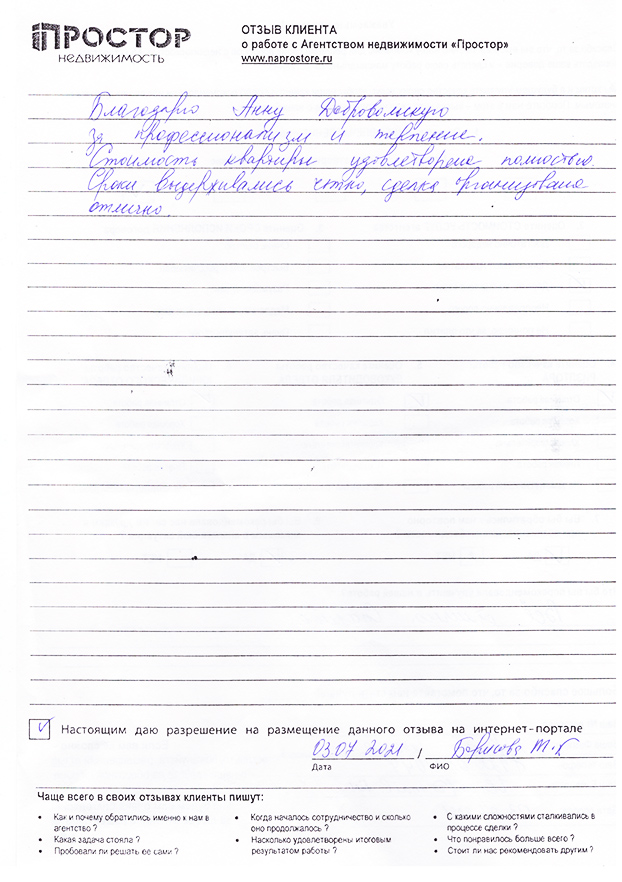 ПРОСТОР
НЕДВИЖИМОСТЬ
ОТЗЫВ КЛИЕНТА
о работе с Агентством недвижимости «Простор»
www.naprostore.ru
Благодарю Анну Добровольскую
за профессионализм и терпение.
Стоимость квартиры удовлетворена полностью.
Сроки выдерживались четко, сделка организована
отлично.
V Настоящим даю разрешение на размещение данного отзыва на интернет-портале
03 07 2021 / Борисова Т.К
Дата ФИО
Чаще всего в своих отзывах клиенты пишут:
• Как и почему обратились именно к нам в
агентство ?
• Какая задача стояла ?
• Пробовали ли решать ее сами ?
• Когда началось сотрудничество и сколько
оно продолжалось ?
• Насколько удовлетворены итоговым
результатом работы ?
• С какими сложностями сталкивались в
процессе сделки ?
• Что понравилось больше всего ?
• Стоит ли нас рекомендовать другим ?